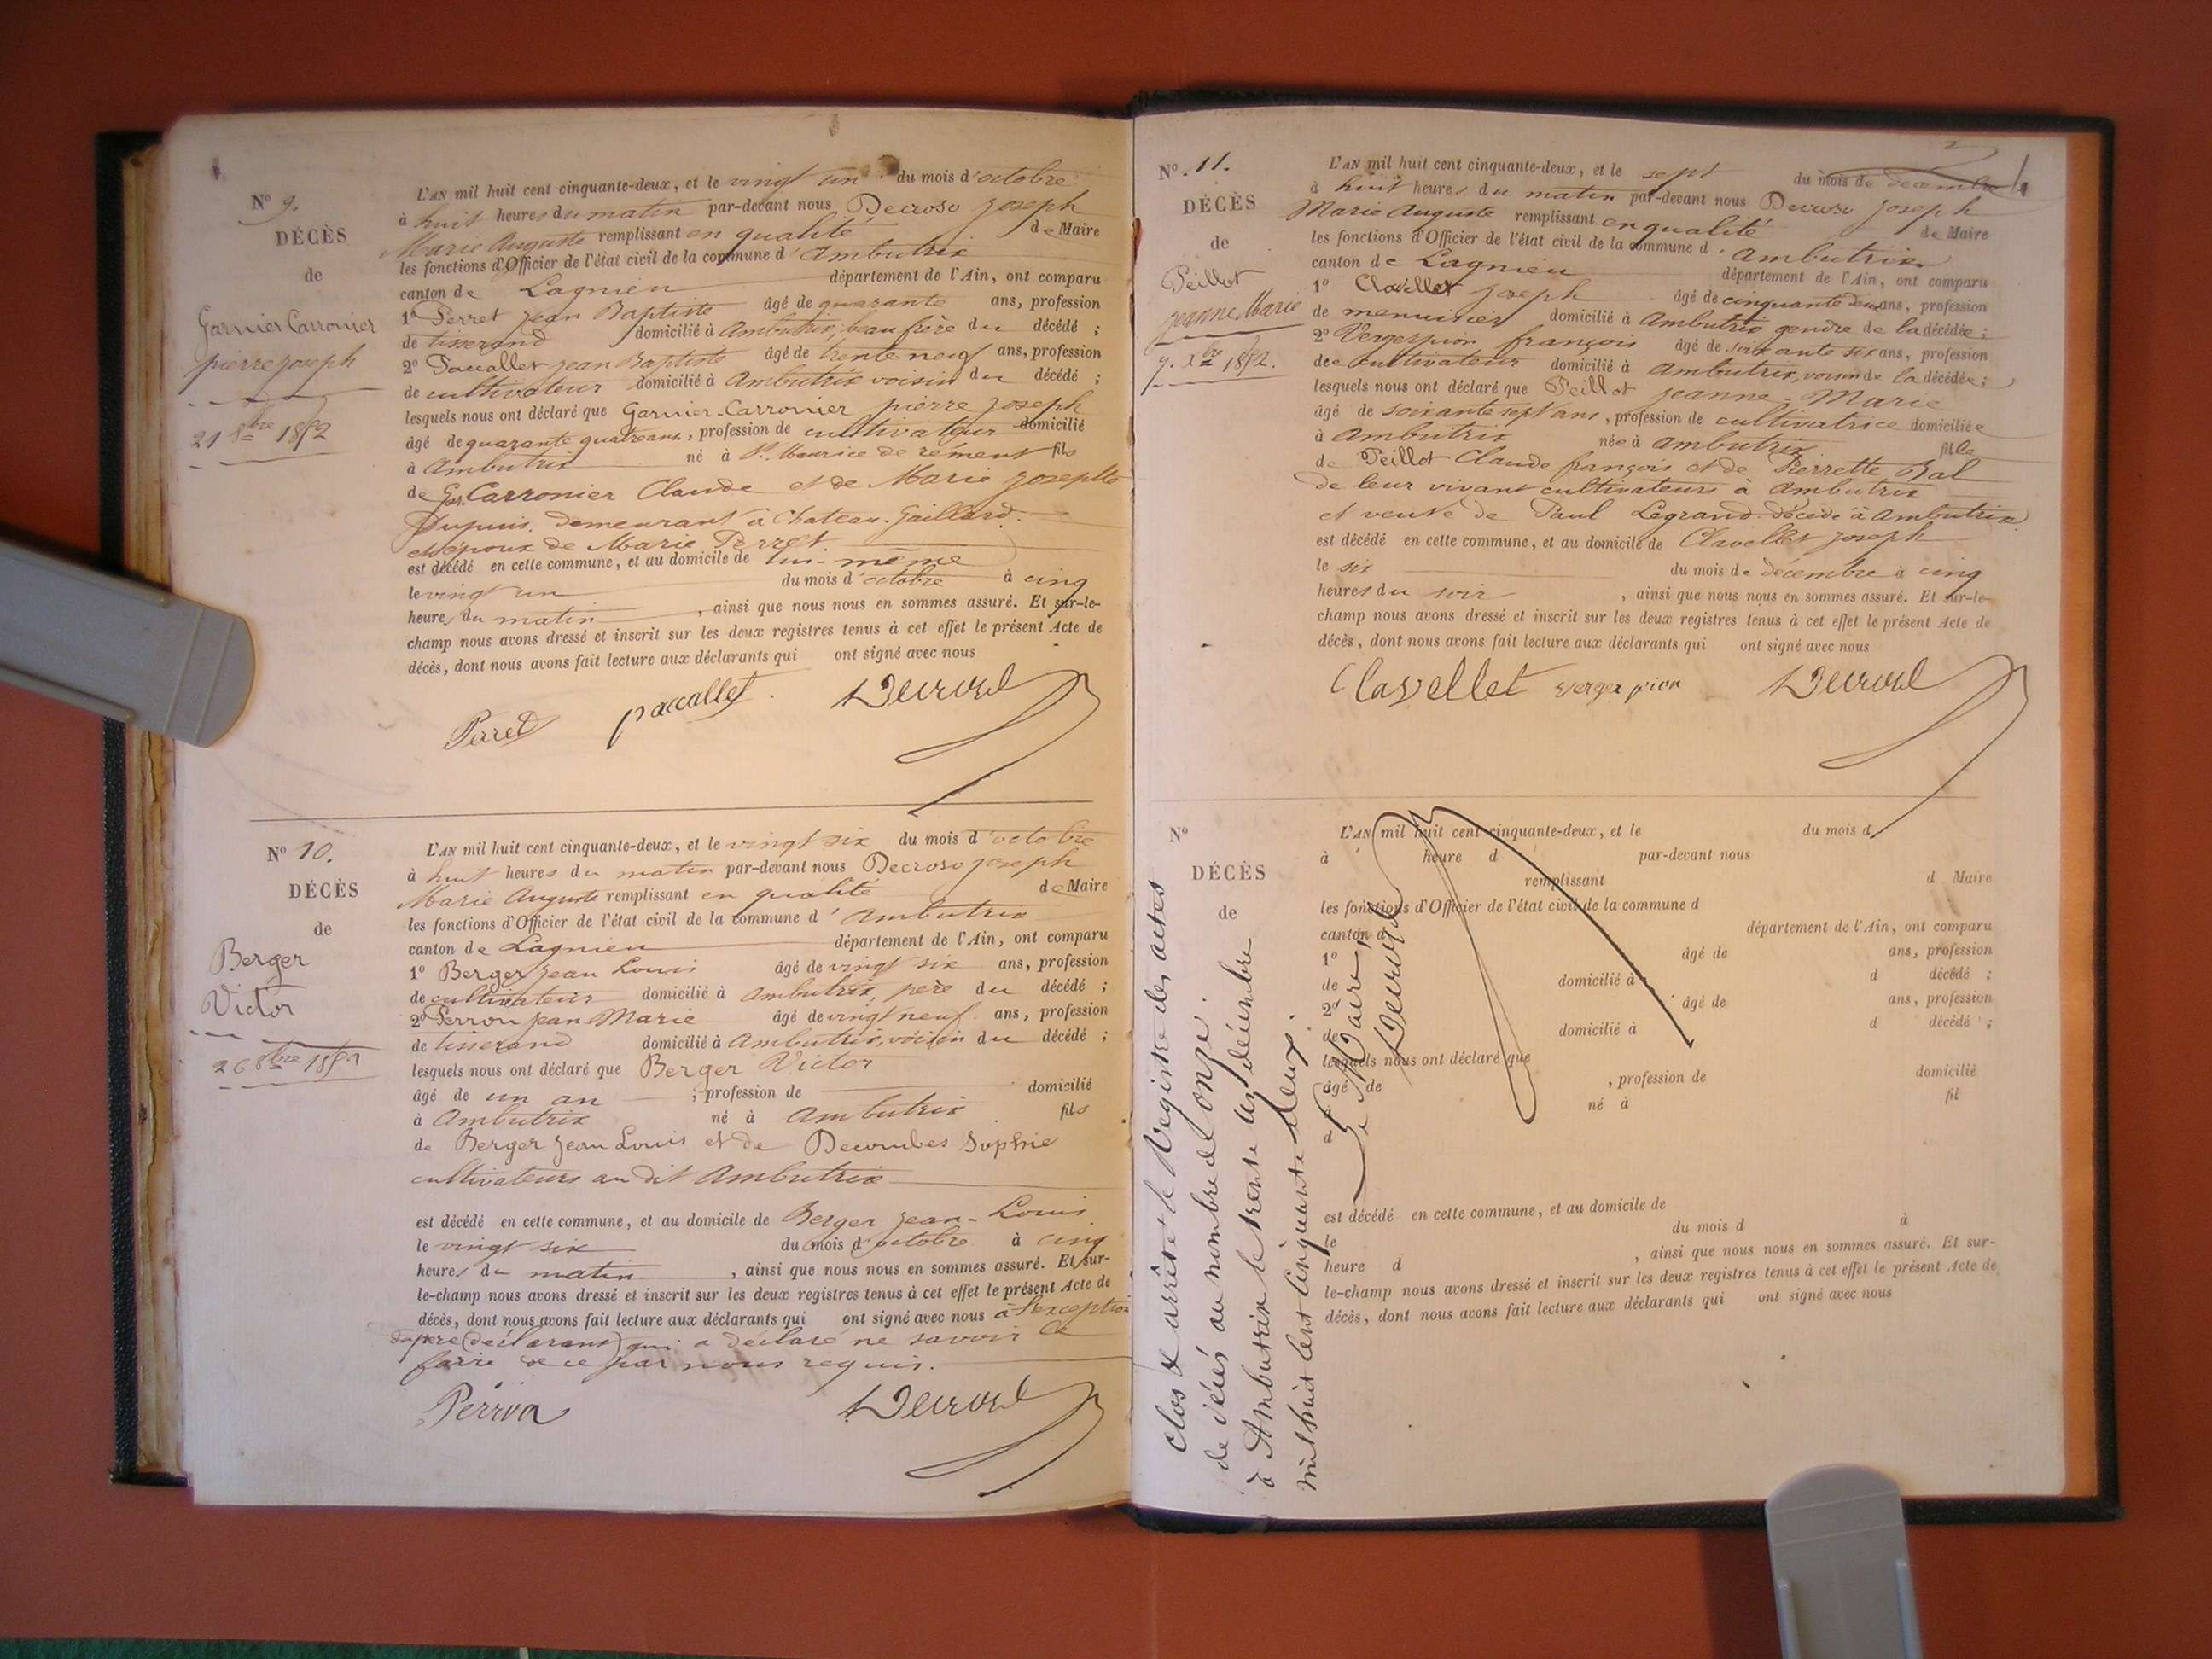 N° 9.
DÉCÈS
de
Garnier Carronier
pierre joseph
21 8bre 1852
L'AN mil huit cent cinquante-deux, et le vingt un du mois d'octobre
à huit heures du matin par-devant nous Decroso Joseph
Marie Auguste remplissant en qualité de Maire
les fonctions d'Officier de l'état civil de la commune d'Ambutrix
canton de Lagnieu département de l'Ain, ont comparu
1° Perret Jean Baptiste âgé de quarante ans, profession
de tisserand domicilié à Ambutrix, beau frère du décédé ;
2° Paccallet Jean Baptiste âgé de trente neuf ans, profession
de cultivateur domicilié à Ambutrix voisin du décédé ;
lesquels nous ont déclaré que Garnier-Carronier pierre Joseph
âgé de quarante quatre ans, profession de cultivateur domicilié
à Ambutrix né à St. Maurice de rémens fils
de Gar. Carronier Claude et de Marie Josephte
Dupuis demeurant à Chateau-Gaillard.
et époux de Marie Perret
est décédé en cette commune, et au domicile de lui-même
le vingt un du mois d'octobre à cinq
heures du matin, ainsi que nous nous en sommes assuré. Et sur-le-
champ nous avons dressé et inscrit sur les deux registres tenus à cet effet le présent Acte de
décès, dont nous avons fait lecture aux déclarants qui ont signé avec nous
Perret paccallet Decroso
N° 10.
DÉCÈS
de
Berger
Victor
26 8bre 1852
L'AN mil huit cent cinquante-deux, et le vingt six du mois d'octobre
à huit heures du matin par-devant nous Decroso Joseph
Marie Auguste remplissant en qualité de Maire
les fonctions d'Officier de l'état civil de la commune d'Ambutrix
canton de Lagnieu département de l'Ain, ont comparu
1° Berger Jean Louis âgé de vingt six ans, profession
de cultivateur domicilié à Ambutrix, père du décédé ;
2° Perron Jean Marie âgé de vingt neuf ans, profession
de tisserand domicilié à Ambutrix, voisin du décédé ;
lesquels nous ont déclaré que Berger Victor
âgé de un an ; profession de domicilié
à Ambutrix né à Ambutrix fils
de Berger Jean Louis et de Decombes Sophie
cultivateurs au dit Ambutrix
est décédé en cette commune, et au domicile de Berger Jean-Louis
le vingt six du mois d'octobre à cinq
heures du matin, ainsi que nous nous en sommes assuré. Et sur-
le-champ nous avons dressé et inscrit sur les deux registres tenus à cet effet le présent Acte de
décès, dont nous avons fait lecture aux déclarants qui ont signé avec nous à l'exception
du père (déclarant) qui a déclaré ne savoir le
faire de ce par nous requis.
Perron Decroso
N°. 11.
DÉCÈS
de
Peillot
jeanne Marie
7. Xbre 1852.
L'AN mil huit cent cinquante-deux, et le sept du mois de décembre
à huit heures du matin par-devant nous Decroso Joseph
Marie Auguste remplissant en qualité de Maire
les fonctions d'Officier de l'état civil de la commune d'Ambutrix
canton de Lagnieu département de l'Ain, ont comparu
1° Clavellet Joseph âgé de cinquante deux ans, profession
de menuisier domicilié à Ambutrix gendre de la décédée ;
2° Vergerpion françois âgé de soixante six ans, profession
de cultivateur domicilié à Ambutrix, voisin de la décédée ;
lesquels nous ont déclaré que Peillot jeanne-Marie
âgé de soixante sept ans, profession de cultivatrice domiciliée
à Ambutrix née à ambutrix fille
de Peillot Claude françois et de Pierrette Bal
de leur vivant cultivateurs à Ambutrix
et veuve de Paul Legrand décédé à Ambutrix
est décédé en cette commune, et au domicile de Clavellet Joseph
le six du mois de décembre à cinq
heures du soir, ainsi que nous nous en sommes assuré. Et sur-le-
champ nous avons dressé et inscrit sur les deux registres tenus à cet effet le présent Acte de
décès, dont nous avons fait lecture aux déclarants qui ont signé avec nous
Clavellet verger pion Decroso
N°
DÉCÈS
de
L'AN mil huit cent cinquante-deux, et le du mois d
à heure d par-devant nous
remplissant d Maire
les fonctions d'Officier de l'état civil de la commune d
canton d département de l'Ain, ont comparu
1° âgé de ans, profession
de domicilié à d décédé ;
2° âgé de ans, profession
de domicilié à d décédé ;
lesquels nous ont déclaré que
âgé de , profession de domicilié
à né à fil
d
est décédé en cette commune, et au domicile de
le du mois d à
heure d , ainsi que nous nous en sommes assuré. Et sur-
le-champ nous avons dressé et inscrit sur les deux registres tenus à cet effet le présent Acte de
décès, dont nous avons fait lecture aux déclarants qui ont signé avec nous
Clos & arrêté le Registre des actes
de décès au nombre de onze.
à Ambutrix le trente un décembre
mil huit cent cinquante deux.
Le Maire,
Decroso